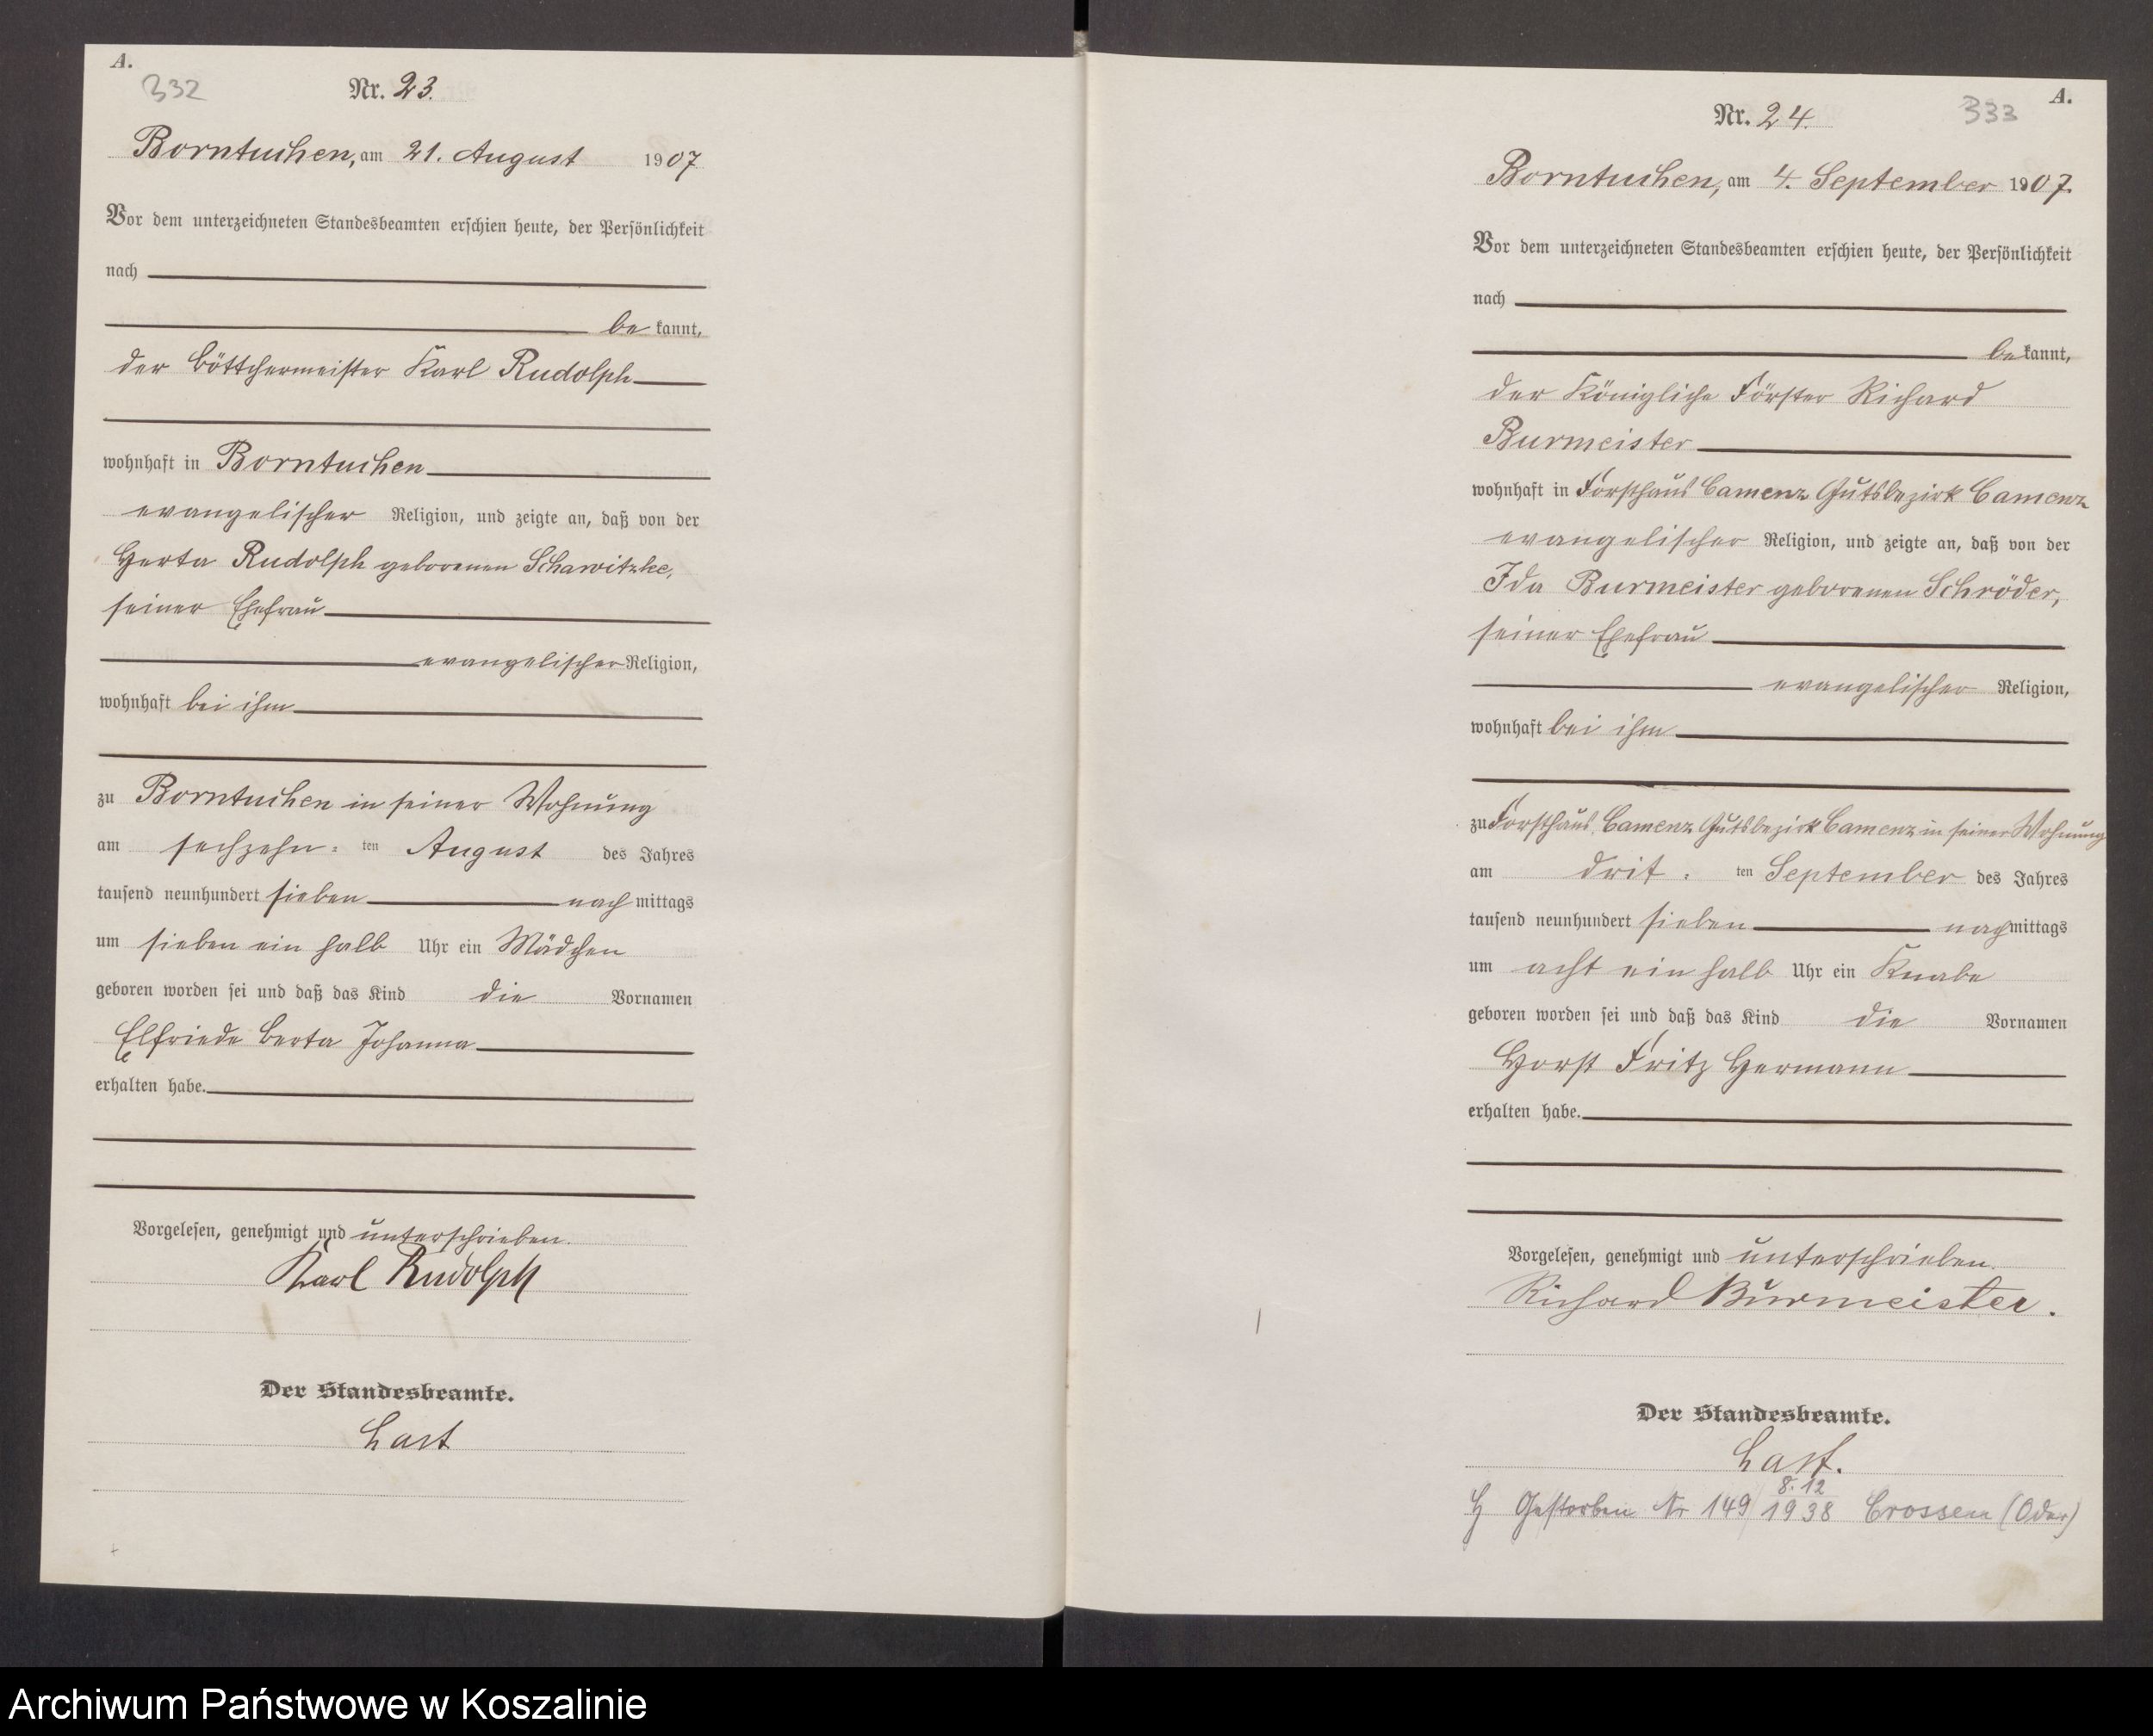 A.
332
Nr. 23.
Borntuchen, am 21. August 1907
Vor dem unterzeichneten Standesbeamten erschien heute, der Persönlichkeit
nach
be kannt,
der Böttchermeister Karl Rudolph
wohnhaft in Borntuchen
evangelischer Religion, und zeigte an, daß von der
Herta Rudolph geborenen Schawitzke,
seiner Ehefrau
evangelischer Religion,
wohnhaft bei ihm
zu Borntuchen in seiner Wohnung
am sechzehn= ten August des Jahres
tausend neunhundert sieben nach mittags
um sieben ein halb Uhr ein Mädchen
geboren worden sei und daß das Kind die Vornamen
Elfriede Berta Johanna
erhalten habe.
Vorgelesen, genehmigt und unterschrieben.
Karl Rudolph
Der Standesbeamte.
Last
A.
333
Nr. 24.
Borntuchen, am 4. September 1907.
Vor dem unterzeichneten Standesbeamten erschien heute, der Persönlichkeit
nach
be kannt,
der Königliche Förster Richard
Burmeister
wohnhaft in Forsthaus Camenz Gutsbezirk Camenz
evangelischer Religion, und zeigte an, daß von der
Ida Burmeister geborenen Schröder,
seiner Ehefrau
evangelischer Religion,
wohnhaft bei ihm
zu Forsthaus Camenz Gutsbezirk Camenz in seiner Wohnung
am drit= ten September des Jahres
tausend neunhundert sieben nach mittags
um acht ein halb Uhr ein Knabe
geboren worden sei und daß das Kind die Vornamen
Horst Fritz Hermann
erhalten habe.
Vorgelesen, genehmigt und unterschrieben.
Richard Burmeister.
Der Standesbeamte.
Last.
8.12
H Gestorben Nr 149/1938 Crossen (Oder)
Archiwum Państwowe w Koszalinie